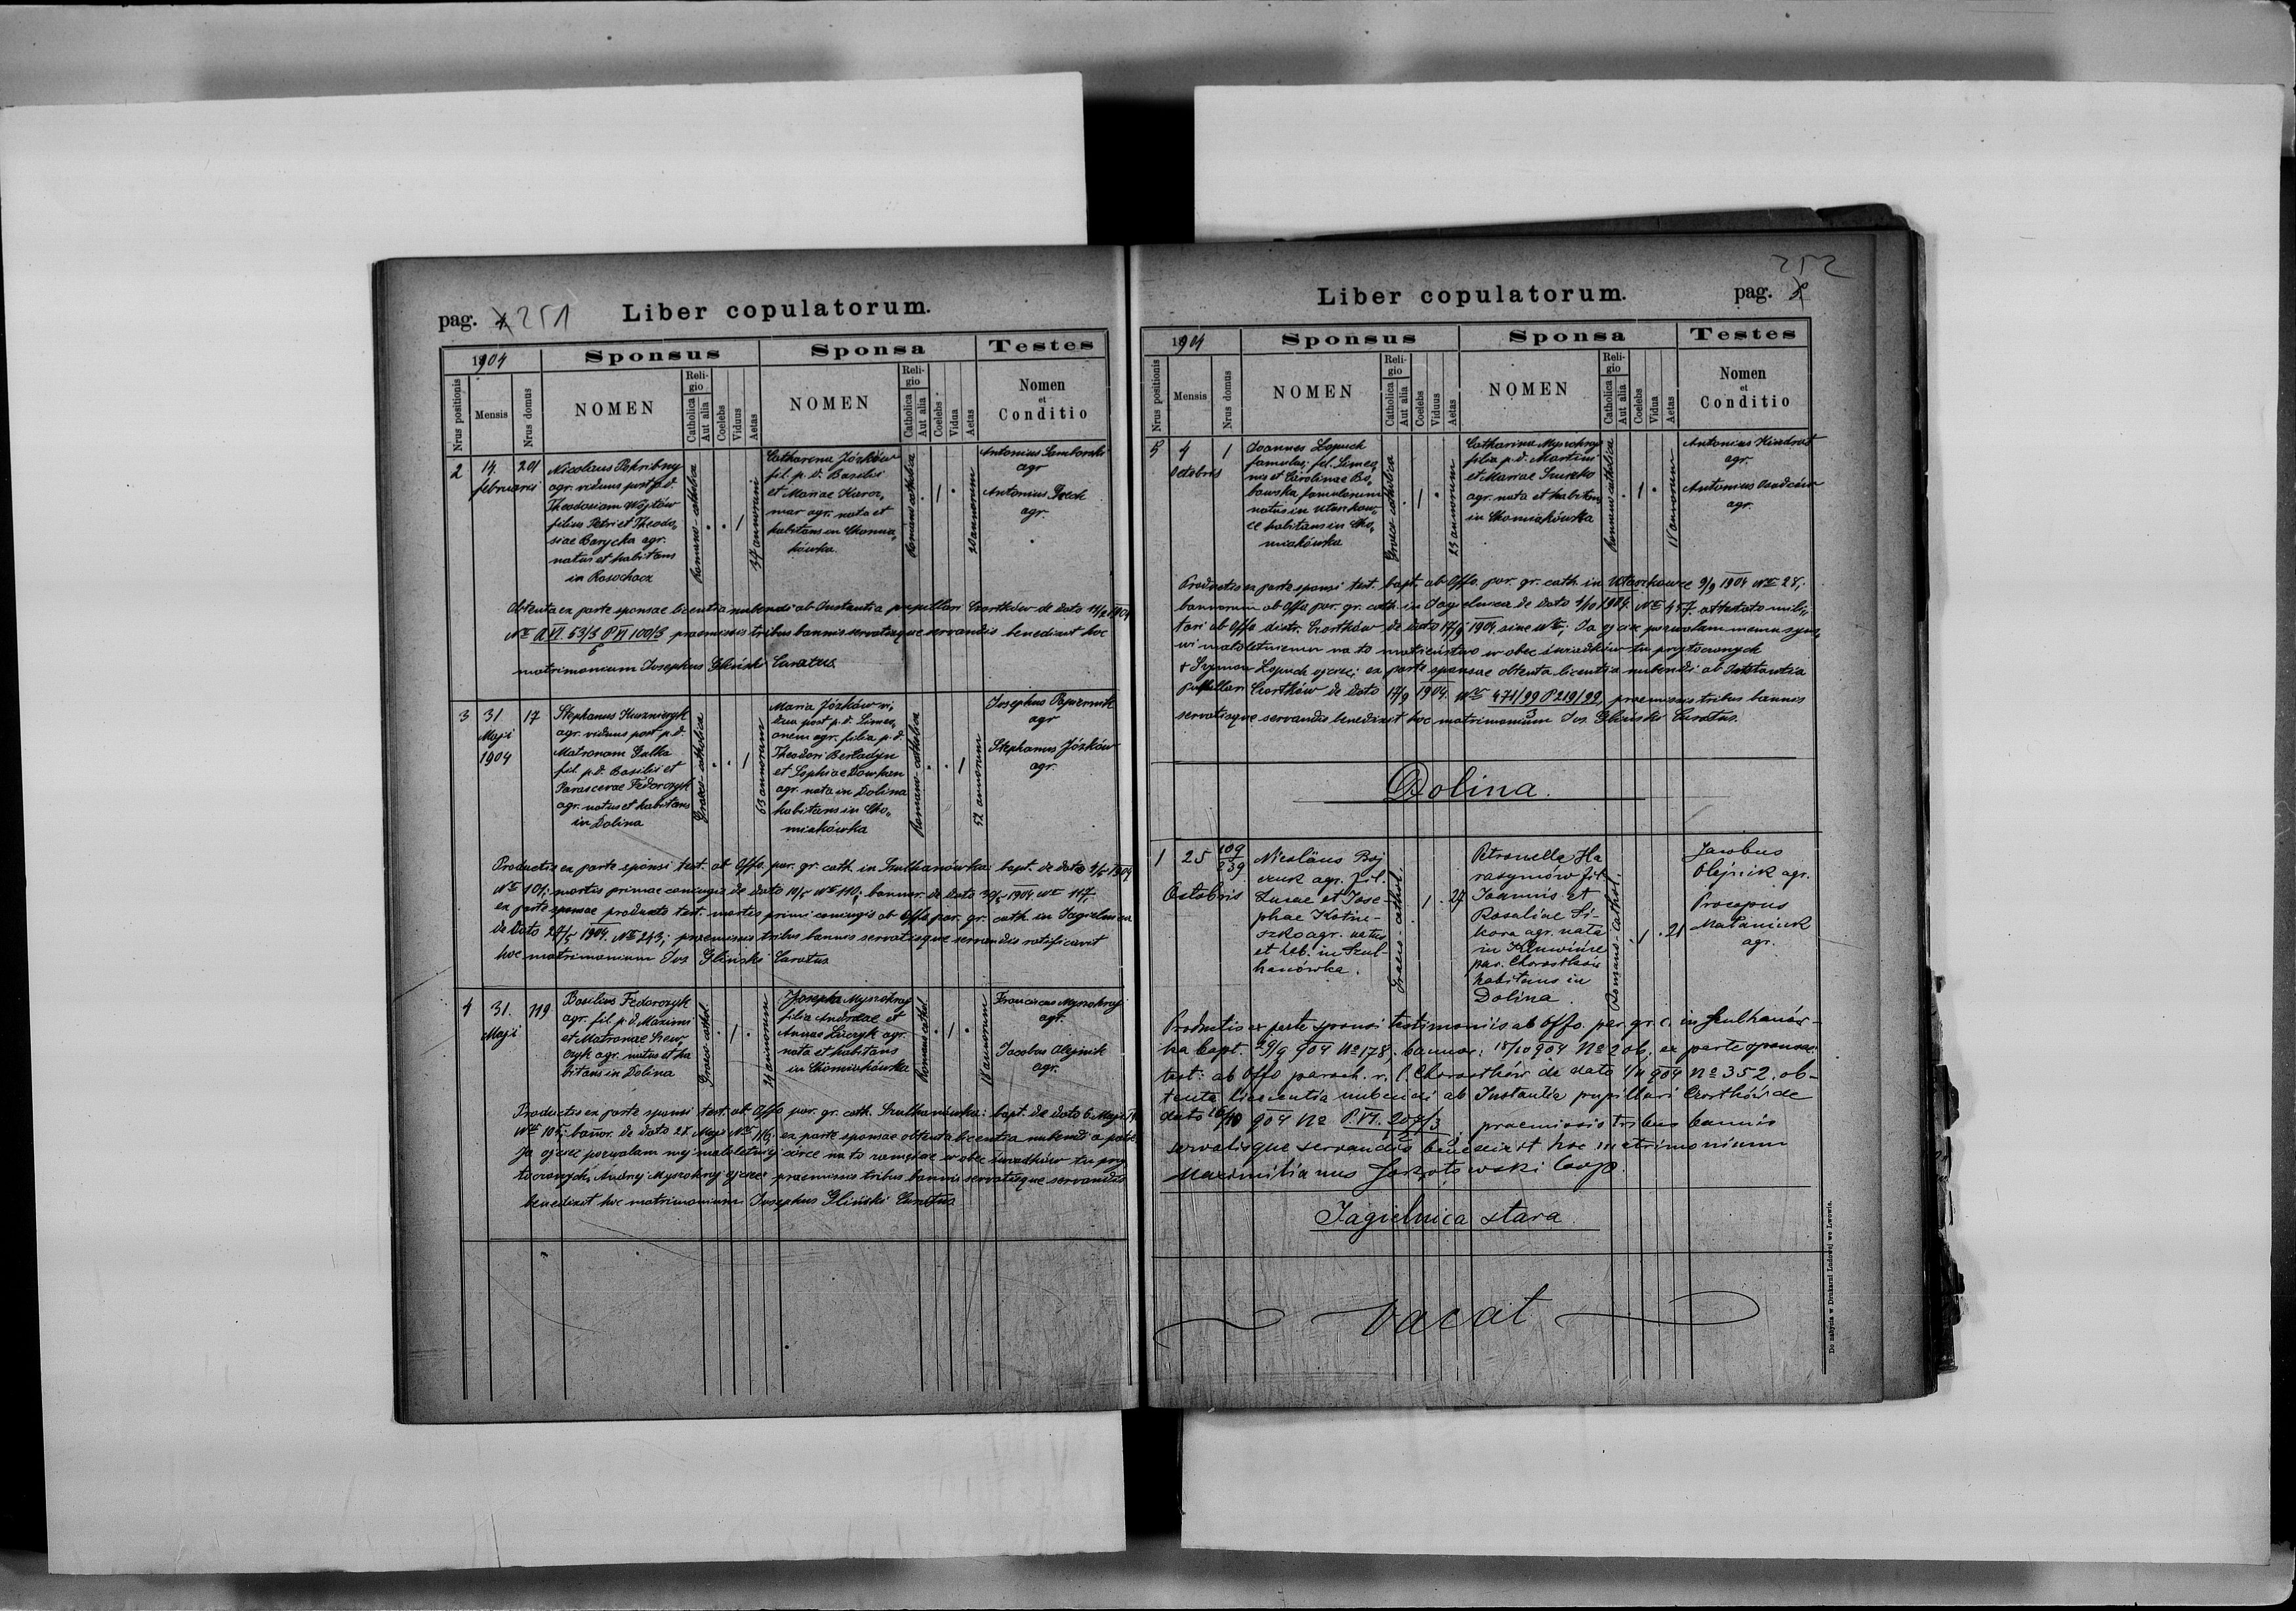 pag. 4 251
Liber copulatorum.
1904
Sponsus
Sponsa
Testes
Nrus positionis
Mensis
Nrus domus
NOMEN
Religio
Catholica
Aut alia
Coelebs
Viduus
Aetas
NOMEN
Religio
Catholica
Aut alia
Coelebs
Vidua
Aetas
Nomen
et
Conditio
2
14
februarii
201
Nicolaus Pokribny
agr. viduus post p.d.
Theodosiam Wójtów
filius Petri et Theodo„
siae Barycka agr.
natus et habitans
in Rosochacz
Romano-catholica
1
37 annorum
Catharena Józków
fil. p. d. Basilii
et Mariae
agr. nata et
habitans in Chomia„
kówka.
Romano catholica
1
20 annorum
Antonius Samborski
agr
Antonius
agr.
Obtenta ex parte sponsae licentia nubendi ab Instantia pupillari Czortków de dato 11/2 1904
Nro A VI. 53/3 P VI 100/3 praemissis tribus bannis servatisque servandis benedixit hoc
6
matrimonium Josephus Gliński Curatus
3
31
Maji
1904
17
Stephanus Kuzniczyk
agr. viduus post p.d.
Matronam Galka
fil. p.d. Basilii et
Parascevae Fedorczyk
agr. natus et habitans
in Dolina
Graeco-catholica
1
63 annorum
Maria Józków vi„
dua post p.d. Simeo„
onem agr. filia p.d.
Theodori Bertadyn
et Sophiae
agr. nata in Dolina
habitans in Cho„
miakówka
Romano-catholica
1
52 annorum
Josephus Papiernik
agr
Stephanus Józków
agr.
Productis ex parte sponsi test. ab Offo. par. gr. cath. in Szulhanówka: bapt. de dato 9/5 1904
Nro 101; mortis primae conjugis de dato 10/5 Nro 110; bannor. de dato 30/5 1904 Nro 117;
ex parte sponsae producto test. mortis primi conjugis ab Offo par. gr. cath. in Jagielnica
de dato 27/5 1904. Nro 243; praemissis tribus bannis servatisque servandis ratificavit
hoc matrimonium Jos Gliński Curatus
4
31.
Maji
119
Basilius Fedorczyk
agr. fil. p.d. Maximi
et Matronae Szew„
czyk agr. natus et ha
bitans in Dolina
Graeco-cathol.
1
24 annorum
Josepha Myszokraj
filia Andreae et
Annae Łuczyk agr.
nata et habitans
in Chomiakówka
Romano cathol.
1
18 annorum
Franciscus Myszokraj
agr.
Jacobus Olejnik
agr.
Productis ex parte sponsi test. ab Offo par. gr. cath. Szulhanówka: bapt. de dato 6 Maji
Nro 105; bannor. de dato 27 Maji Nro 116; ex parte sponsae obtenta licentia nubendi a patre
Ja ojciec pozwalam mej małoletniej córce na to zamęście w obec świadków tu przy
toczonych, Andrej Myszokraj ojciec praemissis tribus bannis servatisque servandis
benedixit hoc matrimonium Josephus Gliński Curatus
252
Liber copulatorum.
pag.
1904
Sponsus
Sponsa
Testes
Nrus positionis
Mensis
Nrus domus
NOMEN
Religio
Catholica
Aut alia
Coelebs
Viduus
Aetas
NOMEN
Religio
Catholica
Aut alia
Coelebs
Vidua
Aetas
Nomen
et
Conditio
5
4
Octobris
1
Joannes Łopuch
famulus, fil. Simeo„
nis et Carolinae Bo„
bowska famulorum
natus in Ułaszkow„
ce habitans in Cho„
miakówka
Graeco catholica
1
23 annorum
Catharina Myszokraj
filia p.d. Martini
et Mariae
agr. nata et habitans
in Chomiakówka
Romano catholica
1
18 annorum
Antonius Kindrat
agr.
Antonius Osadców
agr.
Productis ex parte sponsi test. bapt. ab Offo. par. gr. cath. in Ułaszkowce 9/9 1904 Nro 28;
bannorum ab Offo par. gr. cath. in Jagielnica de dato 4/10 1904. Nro 457. attestato mili„
tari ab Offo distr. Czortków de dato 17/9 1904 sine Nro; Ja ojciec pozwalam memu syno„
wi małoletniemu na to małżeństwo w obec świadków tu przytoczonych
+ Szymon Łopuch ojciec; ex parte sponsae obtenta licentia nubendi ab Instantia
pupillari Czortków de dato 17/9 1904. Nro 471/99 P 219/99, praemissis tribus bannis
3
servatisque servandis benedixit hoc matrimonium Jos. Gliński Curatus.
Dolina.
1
25
Octobris
109
239
Nicolaus Boj
czuk agr. fil.
Lucae et Jose-
phae
agr. natus
et hab. in Szul-
hanówka.
Graeco-cathol.
1
27
Petronella Ha
rasymów fil.
Joannis et
Rosaliae Si-
kora agr. nata
in Kluwińce
par. Chorostków
habitans in
Dolina.
Romano-cathol.
1
21
Jacobus
Olejnik agr.
Procopius
Mataniuk
agr.
Productis ex parte sponsi testimoniis ab Offo. par. gr. c. in Szulhanów-
ka bapt. 29/9 904 No 178; bannor: 18/10 904 No 206; ex parte sponsae
test: ab Offo paroch. r. l. Chorostków de dato 1/11 904 No 352. ob-
tenta licentia nubendi ab Instantia pupillari Czortków de
dato 904 No P.VI. 207/3; praemissis tribus bannis
servatisque servandis benedixit hoc matrimonium
Maximilianus Coop.
Jagielnica stara
vacat
Do nabycia w Drukarni Ludowej we Lwowie.